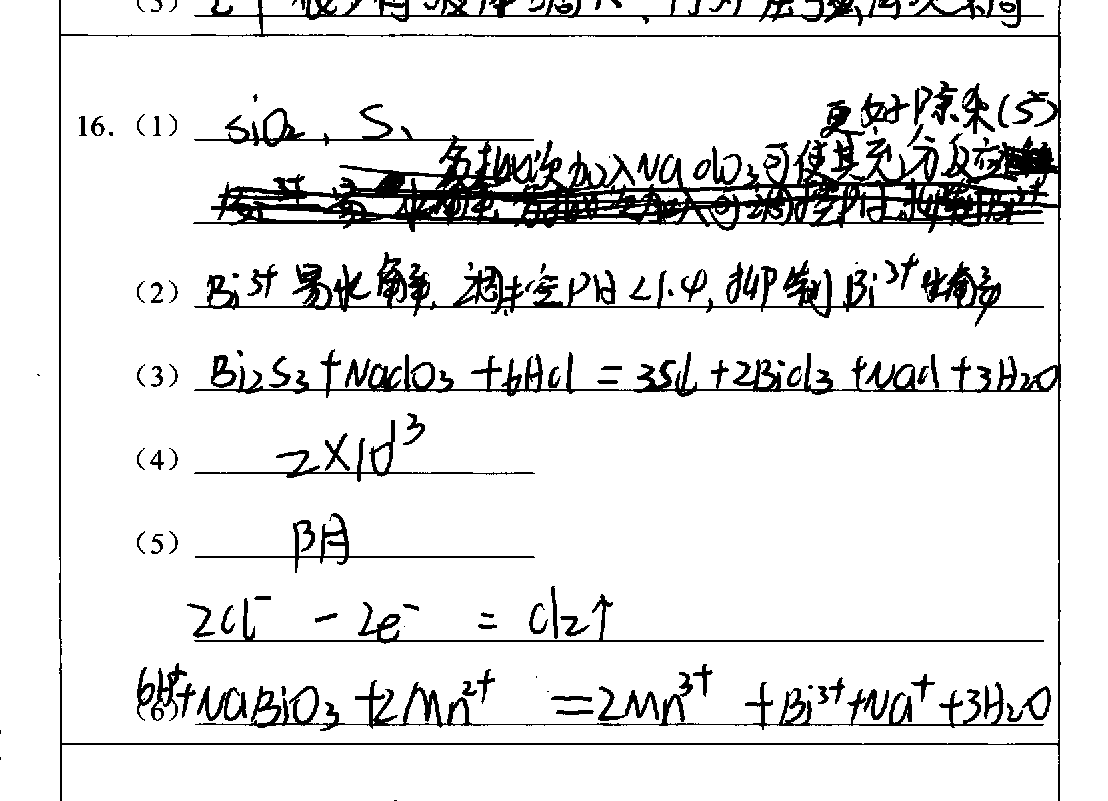 16. (1) SiO2、S、
更好除杂(S)
多批次加入NaClO3可使其充分反应
(2) Bi3+易水解,调控PH<1.4,抑制Bi3+水解
(3) Bi2S3+NaClO3+6HCl=3S↓+2BiCl3+NaCl+3H2O
(4) 2×10^13
(5) 阴
2Cl⁻ - 2e⁻ = Cl2↑
(6) 6H⁺+NaBiO3+2Mn²⁺=2Mn³⁺+Bi³⁺+Na⁺+3H2O